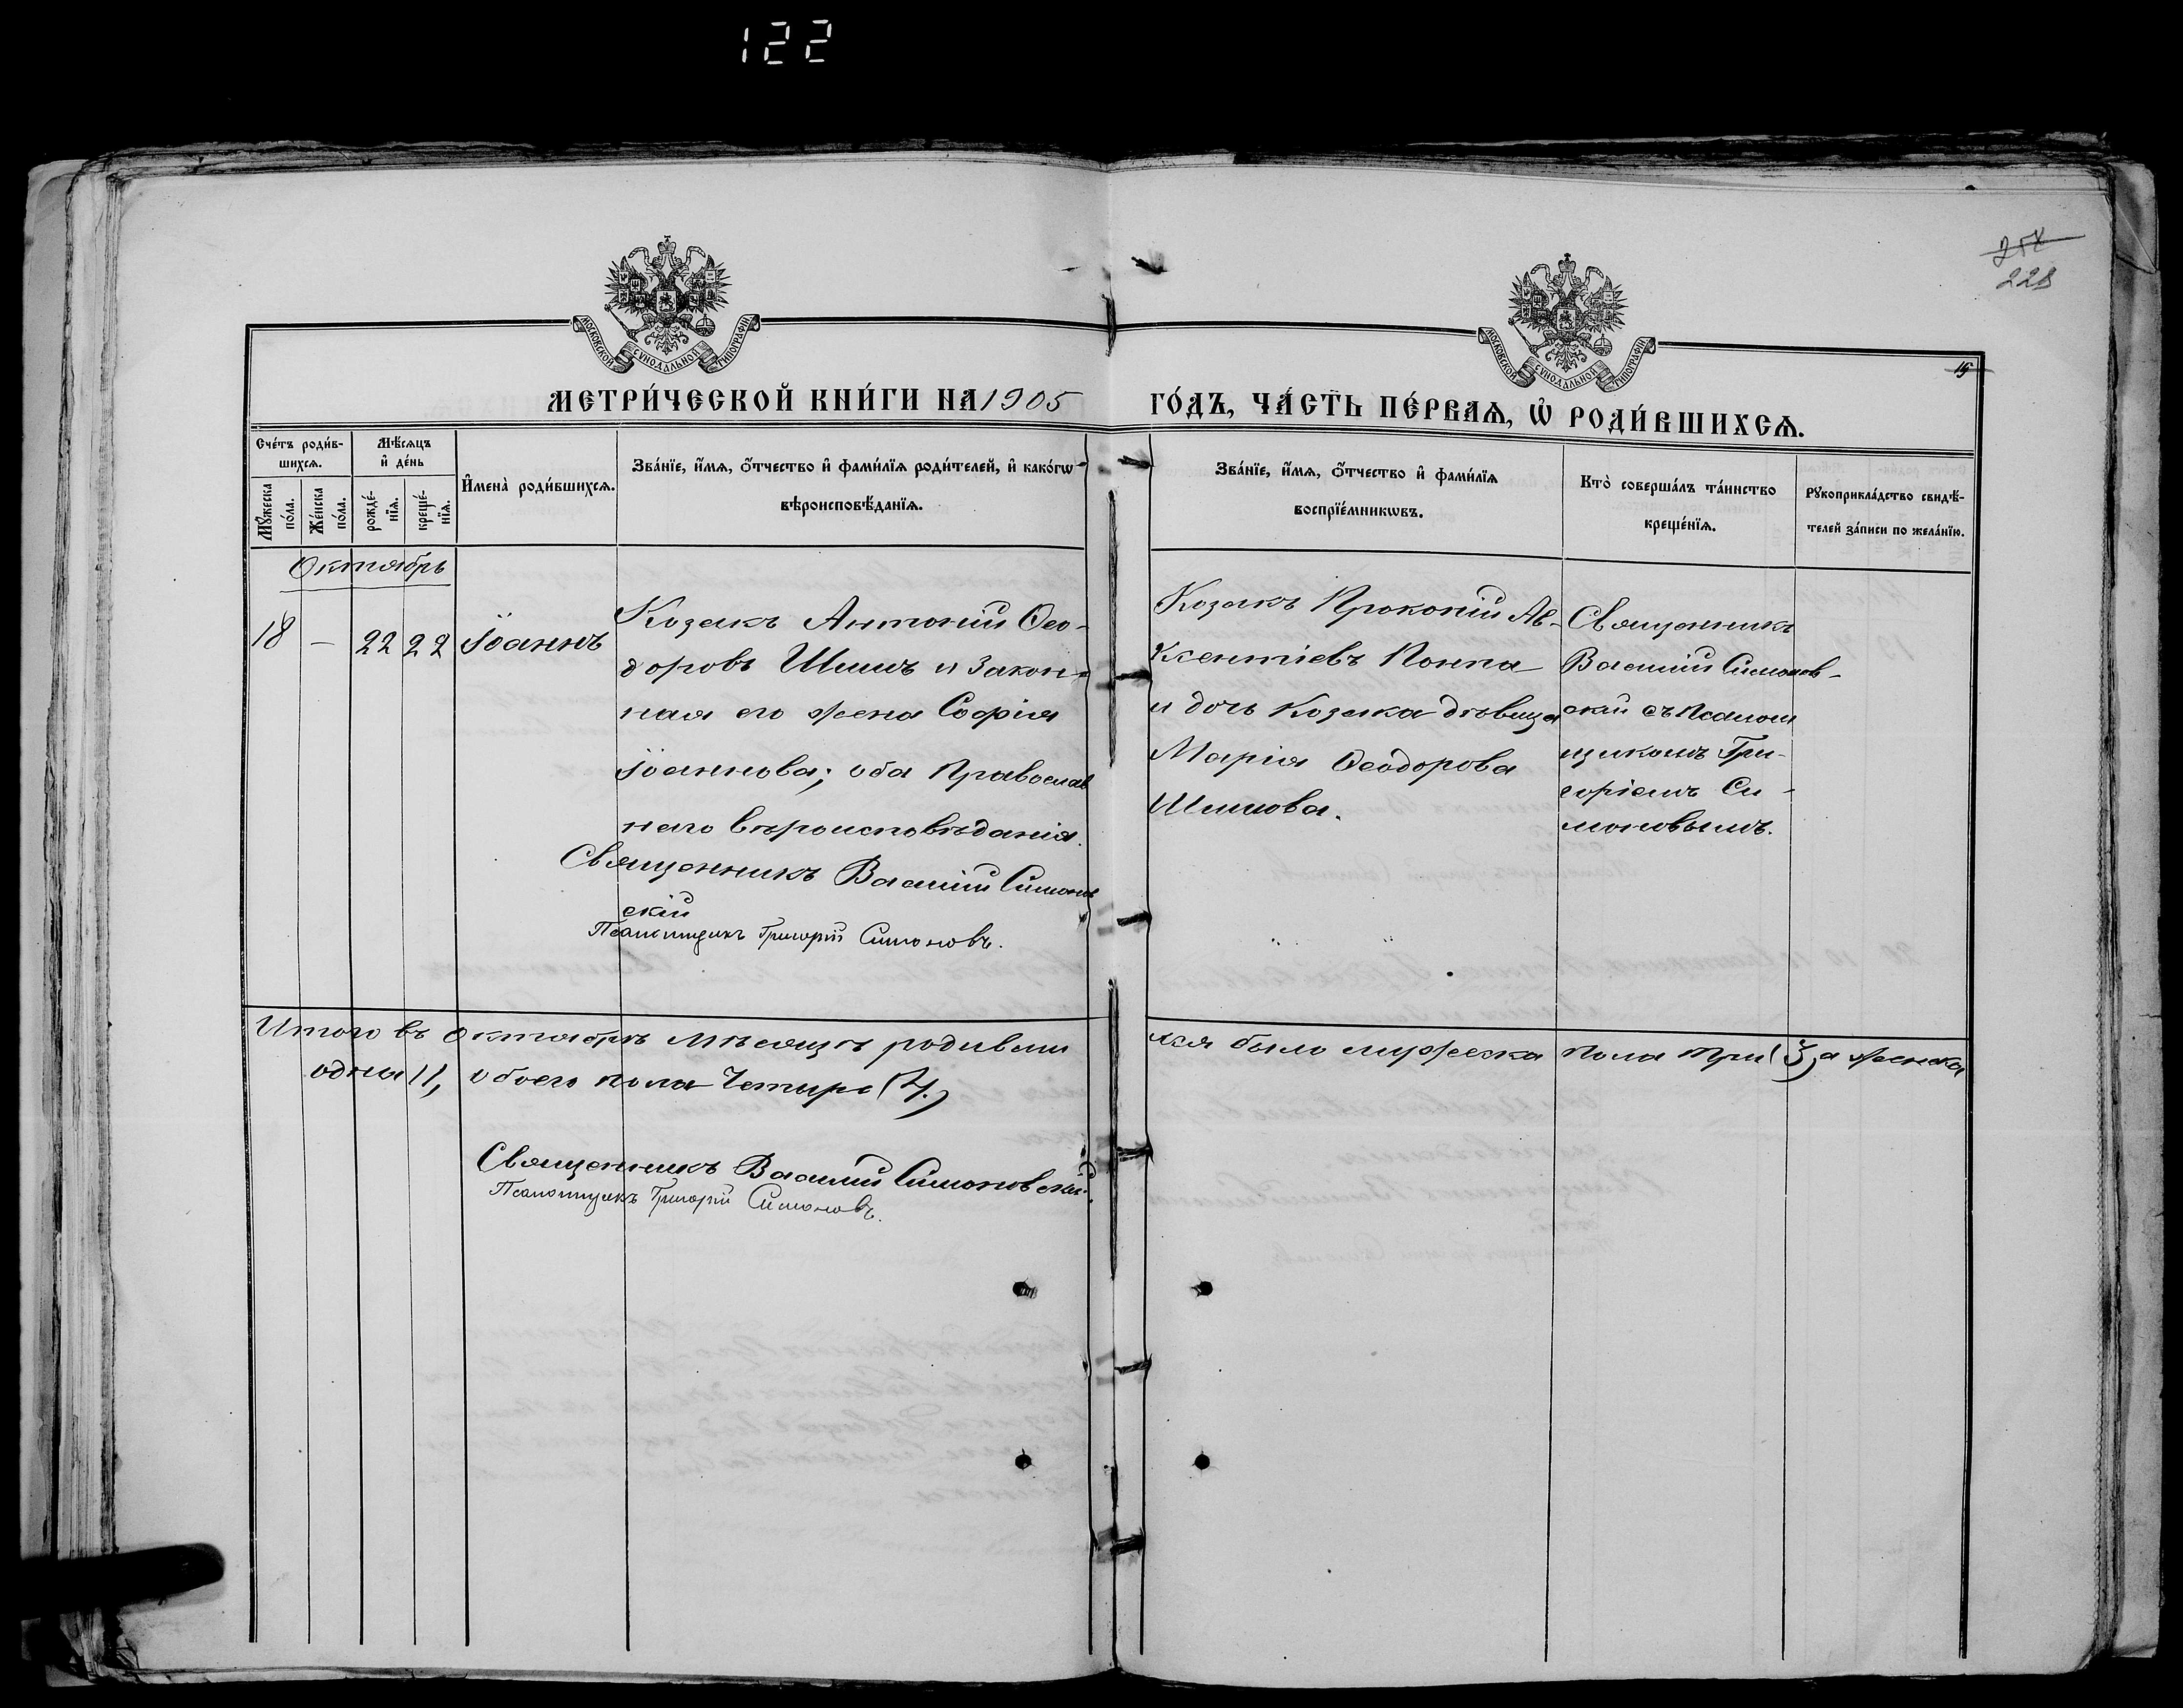 122
254
228
МОСКОВСКОЙ СѴНОДАЛЬНОЙ ТИПОГРАФІИ
МОСКОВСКОЙ СѴНОДАЛЬНОЙ ТИПОГРАФІИ
15
МЕТРИ́ЧЕСКОЙ КНИ́ГИ НА 1905 ГО́ДЪ, ЧА́СТЬ ПЕ́РВАѦ, Ѡ҆ РОДИ́ВШИХСѦ.
Сче́тъ роди́в-
шихсѧ.
Мꙋ́жеска
по́ла.
Же́нска
по́ла.
Мѣ́сѧцъ
и҆ де́нь
рожде́-
нїѧ.
креще́-
нїѧ.
И҆мена̀ роди́вшихсѧ.
Зва́нїе, и҆́мѧ, ѻ҆́тчество и҆ фами́лїѧ роди́телей, и҆ како́гѡ
вѣроисповѣ́данїѧ.
Зва́нїе, и҆́мѧ, ѻ҆́тчество и҆ фами́лїѧ
воспрїе́мникѡвъ.
Кто̀ соверша́лъ та́инство
креще́нїѧ.
Рꙋкоприкла́дство свидѣ́-
телей за́писи по жела́нїю.
Октябрь
18 — 22 22 Іоаннъ
Козакъ Антоній Ѳео-
доровъ Шишъ и закон-
ная его жена Софія
Іоаннова; оба Православ
наго вѣроисповѣданія.
Священникъ Василій Симонов
скій
Псаломщикъ Григорій Симоновъ.
Козакъ Прокопій Ав-
ксентіевъ Конпа
и дочь козака дѣвица
Марія Ѳеодорова
Шишова.
Священникъ
Василій Симонов-
скій съ Псалом
щикомъ Гри-
горіемъ Си-
моновымъ.
Итого въ Октябрѣ мѣсяцѣ родивши хся было мужеска пола три (3) а женска
одна (1, обоего пола Четыре (4.)
Священникъ Василій Симоновскій.
Псаломщикъ Григорій Симоновъ.